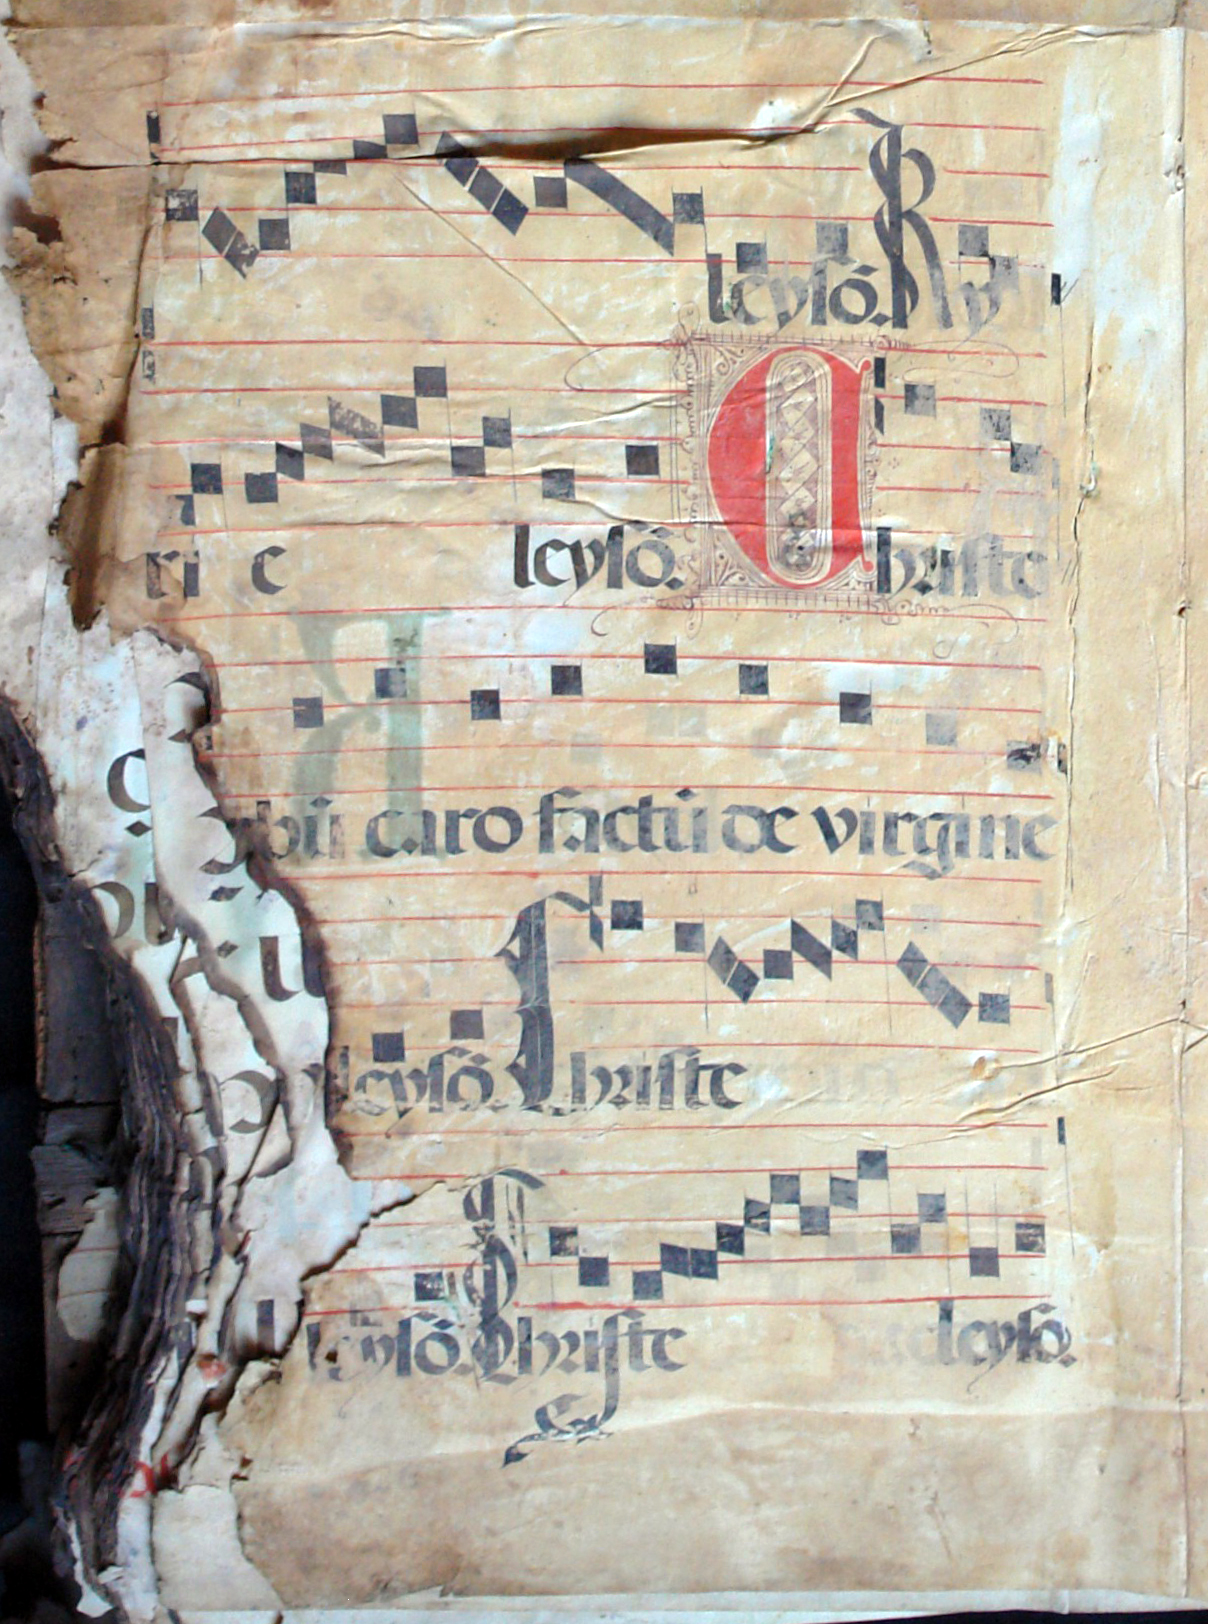 leysõ. Ky
ri e leysõ. Christe
caro factũ de virgine
leysõ. Christe
leysõ. Christe eleysõ.